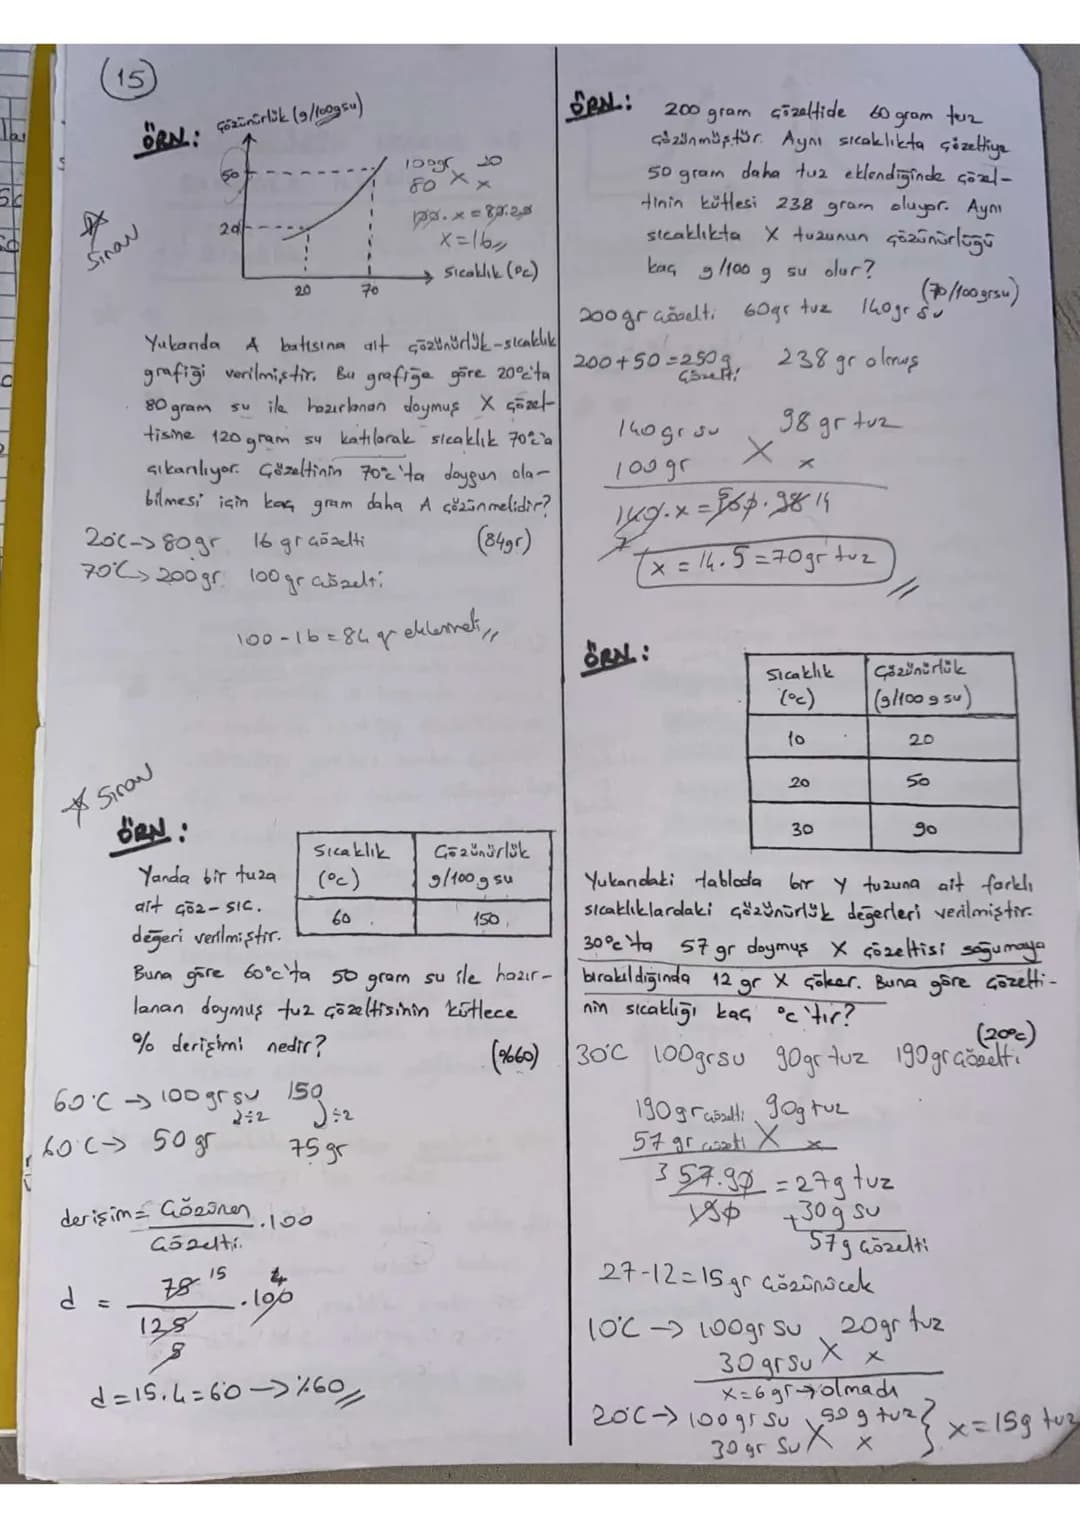 15
ÖRN:
Çözünürlük (g/100gsu)
50
20
20
70
Sıcaklık (°c)
100gr 20
80 x
100.x = 80.20
x=16
Sınav
Yukarıda A katısına ait çözünürlük-sıcaklık
grafiği verilmiştir. Bu grafiğe göre 20°c'ta
80 gram su ile hazırlanan doymuş X çözel-
tisine 120 gram su katılarak sıcaklık 70°c'a
çıkarılıyor. Çözeltinin 70°c'ta doygun ola-
bilmesi için kaç gram daha A çözünmelidir?
(84gr)
20°C→80gr 16 gr çözelti
70°C→200gr 100 gr çözelti
100-16=84 gr eklenmeli
Sınav
ÖRN:
Sıcaklık (°c)
Çözünürlük g/100 g su
60
150
Yanda bir tuza
ait çöz-sıc.
değeri verilmiştir.
Buna göre 60°c'ta 50 gram su ile hazır-
lanan doymuş tuz çözeltisinin kütlece
% derişimi nedir?
(%60)
60°C → 100 gr su 150
÷2 ÷2
60°C→ 50 gr 75 gr
derişim= Çözünen .100
Çözelti
d = 75 15 .100 4
125
5
d=15.4=60→%60
ÖRN:
200 gram çözeltide 60 gram tuz
çözünmüştür. Aynı sıcaklıkta çözeltiye
50 gram daha tuz eklendiğinde çözel-
tinin kütlesi 238 gram oluyor. Aynı
sıcaklıkta X tuzunun çözünürlüğü
kaç g/100 g su olur?
(70/100grsu)
200 gr çözelti 60gr tuz 140gr su
200+50=250g çözelti 238 gr olmuş
140 gr su 98 gr tuz
100 gr x
140.x = 100.98 14
x = 14.5=70gr tuz
ÖRN:
Sıcaklık (°c)
Çözünürlük (g/100 g su)
10 20
20 50
30 90
Yukarıdaki tabloda bir Y tuzuna ait farklı
sıcaklıklardaki çözünürlük değerleri verilmiştir.
30°c'ta 57 gr doymuş X çözeltisi soğumaya
bırakıldığında 12 gr X çöker. Buna göre çözelti-
nin sıcaklığı kaç °c'tır?
(20°c)
30°C 100grsu 90gr tuz 190gr çözelti
190gr çözelti 90g tuz
57 gr çözelti x
3 57.90 = 27g tuz
190 +30g su
57g çözelti
27-12=15gr çözünücek
10°C → 100gr su 20gr tuz
30 gr su x
x=6gr→olmadı
20°C→ 100gr su 50 g tuz } x=15g tuz
30 gr su x